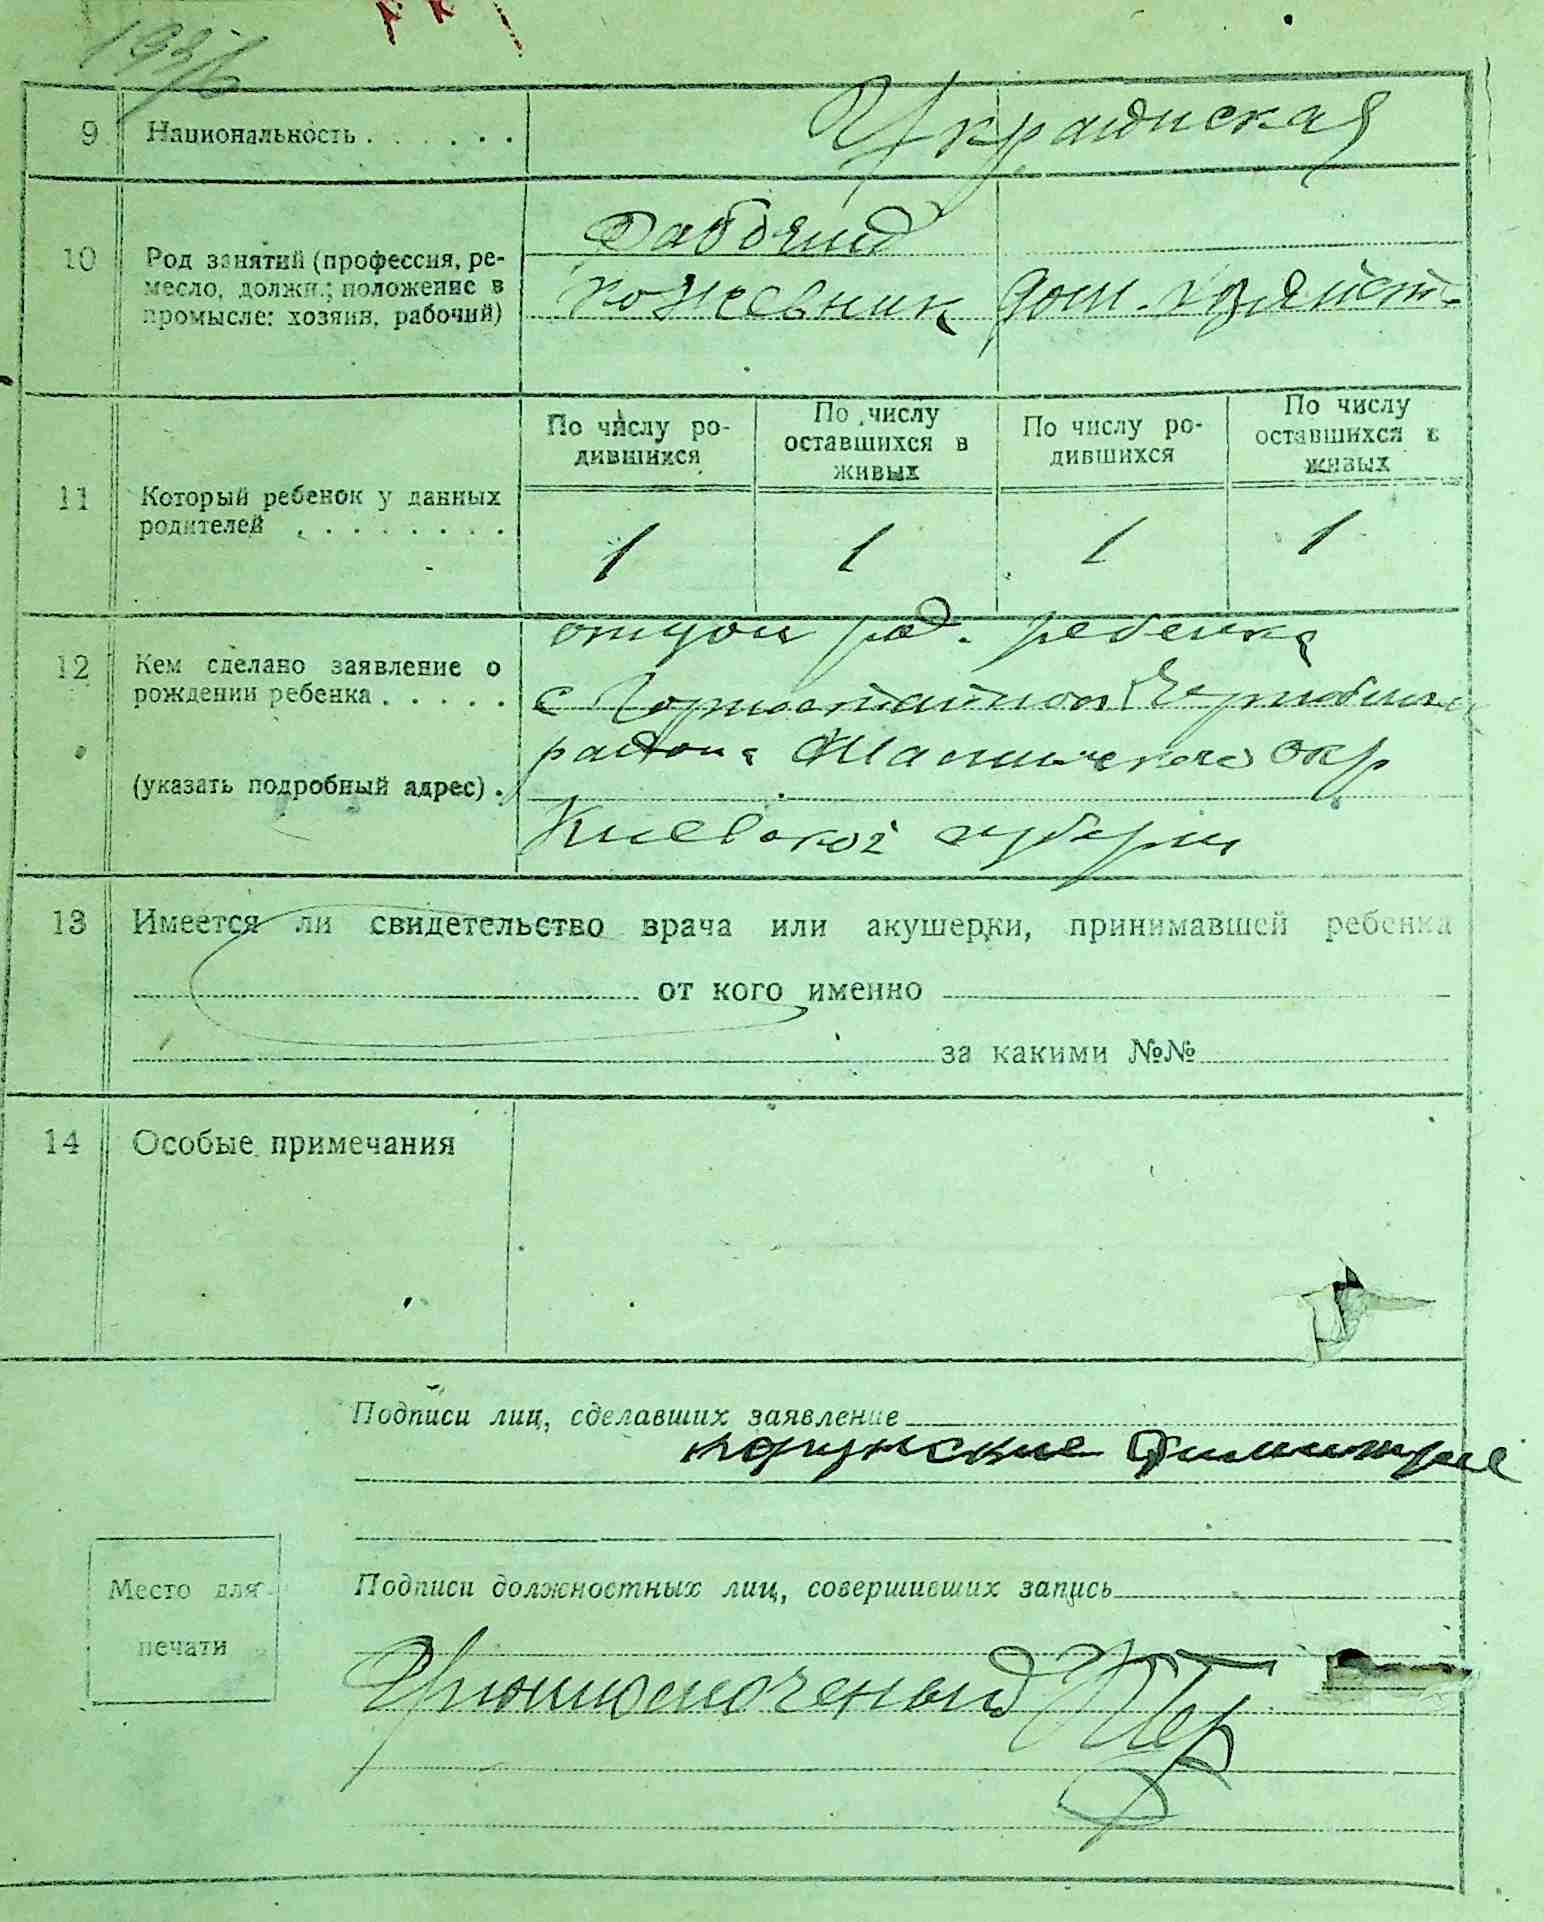 9 Национальность . . . . . . Украинская
10 Род занятий (профессия, ре-
месло, должн.; положение в
промысле: хозяин, рабочий)
Рабочий
кожевник дом. хозяйст
11 Который ребенок у данных
родителей . . . . . . . .
По числу ро-
дившихся
По числу
оставшихся в
живых
По числу ро-
дившихся
По числу
оставшихся в
живых
1 1 1 1
12 Кем сделано заявление о
рождении ребенка . . . . .
(указать подробный адрес) .
отцом род. ребенка
с Горностайпол Чернобыльск
района Окр
Киевской губерни
13 Имеется ли свидетельство врача или акушерки, принимавшей ребенка
от кого именно
за какими №№
14 Особые примечания
Подписи лиц, сделавших заявление
Место для
печати
Подписи должностных лиц, совершивших запись